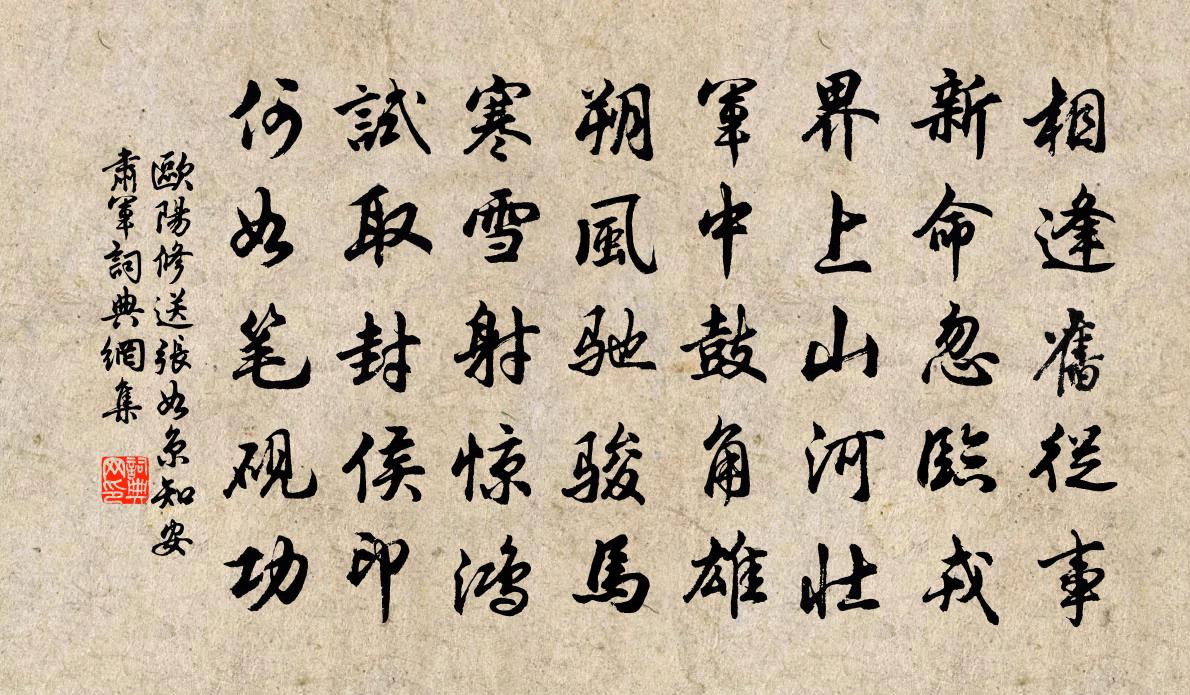 相逢舊從事
新命忽臨戎
界上山河壯
軍中鼓角雄
朔風馳駿馬
寒雪射惊鴻
試取封侯印
何如笔硯功
歐陽修送張如京知安
肅軍詞典網集
詞典
网印